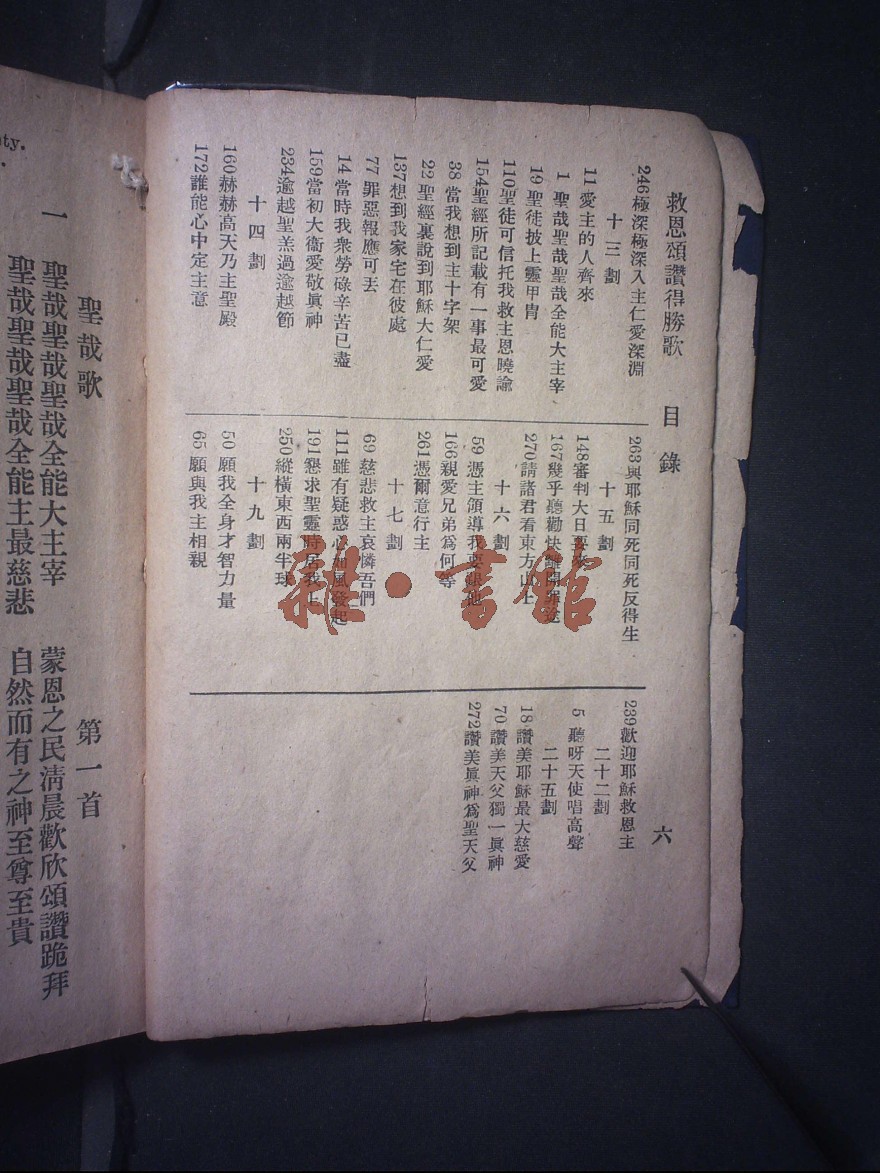 救恩頌讚得勝歌 目錄 六
246極深極深入主仁愛深淵
十三劃
11愛主的人齊來
1聖哉聖哉聖哉全能大主宰
19聖徒披上靈甲冑
110聖徒可信托我救主恩曉諭
154聖經所記載有一事最可愛
38當我想到主十字架
22聖經裏說到耶穌大仁愛
137想到我家宅在彼處
77罪惡報應可丟
14當時我衆勞碌辛苦已盡
159當初大衞愛敬眞神
234逾越聖羔過逾越節
十四劃
160赫赫高天乃主聖殿
172誰能心中定主意
263與耶穌同死同死反得生
十五劃
148審判大日要來
167幾乎聽勸快離開罪途
270請諸君看東方山上
十六劃
59憑主領導我要跟他
166親愛兄弟爲何等
261憑爾意行主
十七劃
69慈悲救主哀憐吾們
111雖有疑惑心如風發起
191懇求聖靈時居我上
250縱橫東西兩半球
十九劃
50願我全身才智力量
65願與我主相親
239歡迎耶穌救恩主
二十二劃
5聽呀天使唱高聲
二十五劃
18讚美耶穌最大慈愛
70讚美天父獨一眞神
272讚美眞神爲聖天父
雜·書館
ty.
聖哉歌 第一首
一 聖哉聖哉聖哉全能大主宰 蒙恩之民淸晨歡欣頌讚跪拜
聖哉聖哉聖哉全能主最慈悲 自然而有之神至尊至貴